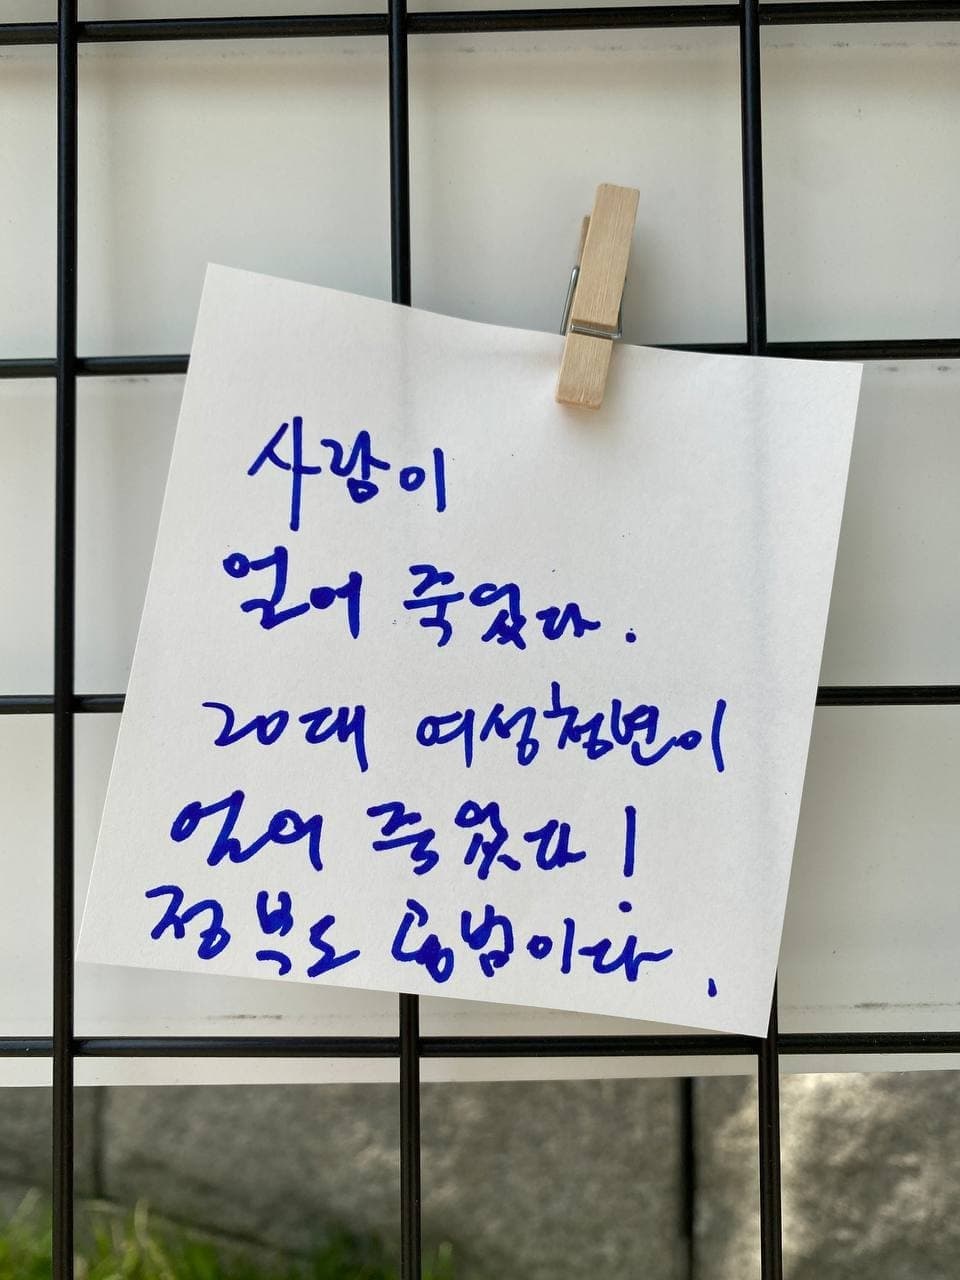 사람이
얼어 죽었다.
20대 여성청년이
얼어 죽었다!
정부도 공범이다.